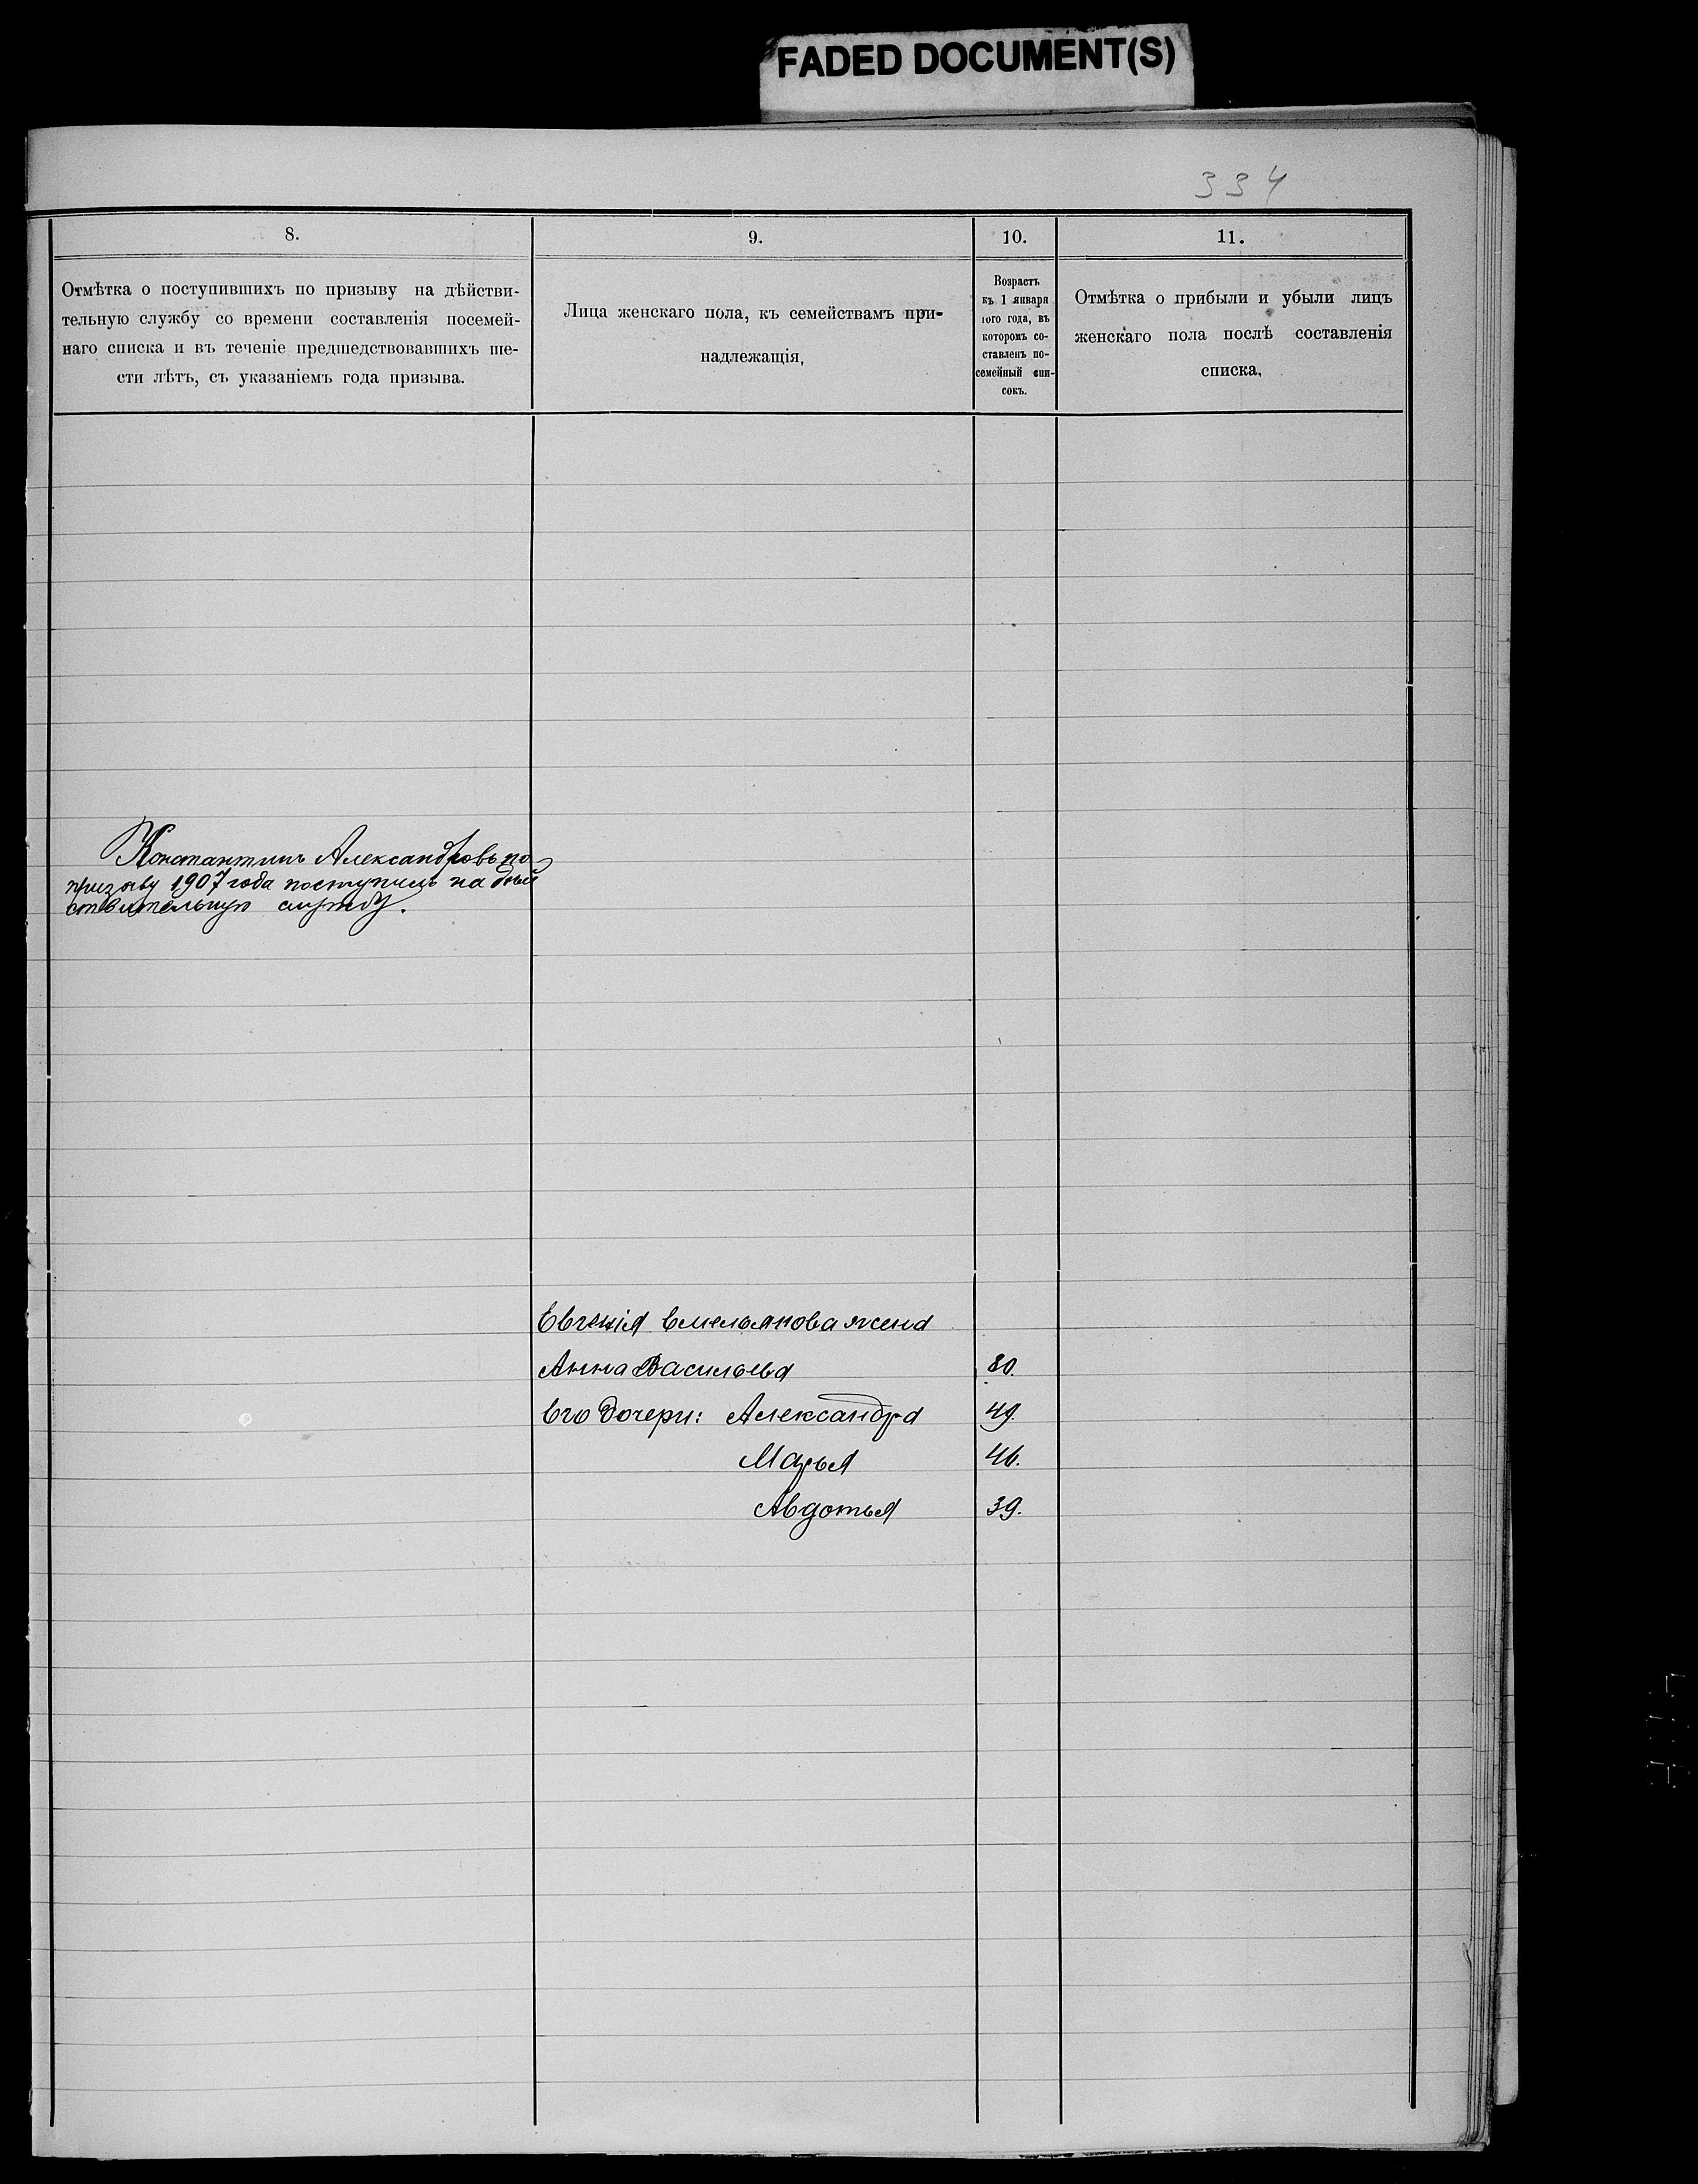 FADED DOCUMENT(S)
334
8.
Отмѣтка о поступившихъ по призыву на дѣйстви-
тельную службу со времени составленія посемей-
наго списка и въ теченіе предшедствовавшихъ ше-
сти лѣтъ, съ указаніемъ года призыва.
9.
Лица женскаго пола, къ семействамъ при-
надлежащія,
10.
Возрастъ
къ 1 января
того года, въ
которомъ со-
ставленъ по-
семейный спи-
сокъ.
11.
Отмѣтка о прибыли и убыли лицъ
женскаго пола послѣ составленія
списка,
Константинъ Александровъ по
призыву 1907 года поступилъ на дѣй
ствительную службу.
Евгенія Емельянова жена
Анна Васильева 80.
Его дочери: Александра 49.
Марья 46.
Авдотья 39.